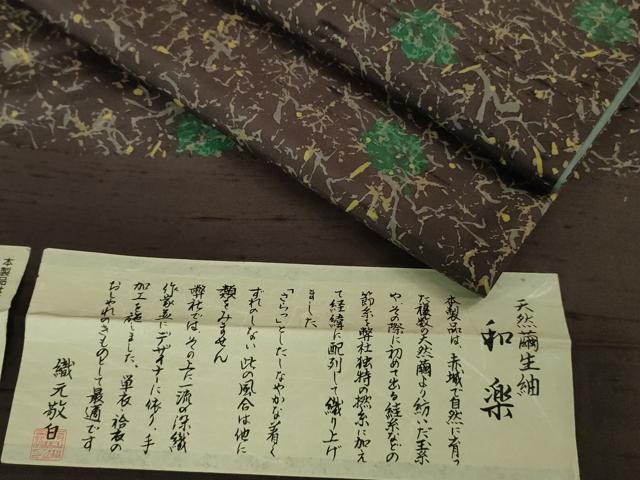 天然繭生紬
和楽
本製品は、赤城で自然に育っ
た複数の天然繭より紡いだ玉糸
や、その際に初めて出る経糸などの
節糸を弊社独特の撚糸に加え
て経緯に配列して織り上げ
ました
「さらっ」としたしなやかな着く
ずれのしない此の風合は他に
類をみません
弊社では、その上に一流の染織
作家並にデザイナーに依り、手
加工を施しました、単衣、袷衣の
おしゃれのきものとして最適です
織元敬白
本製品は